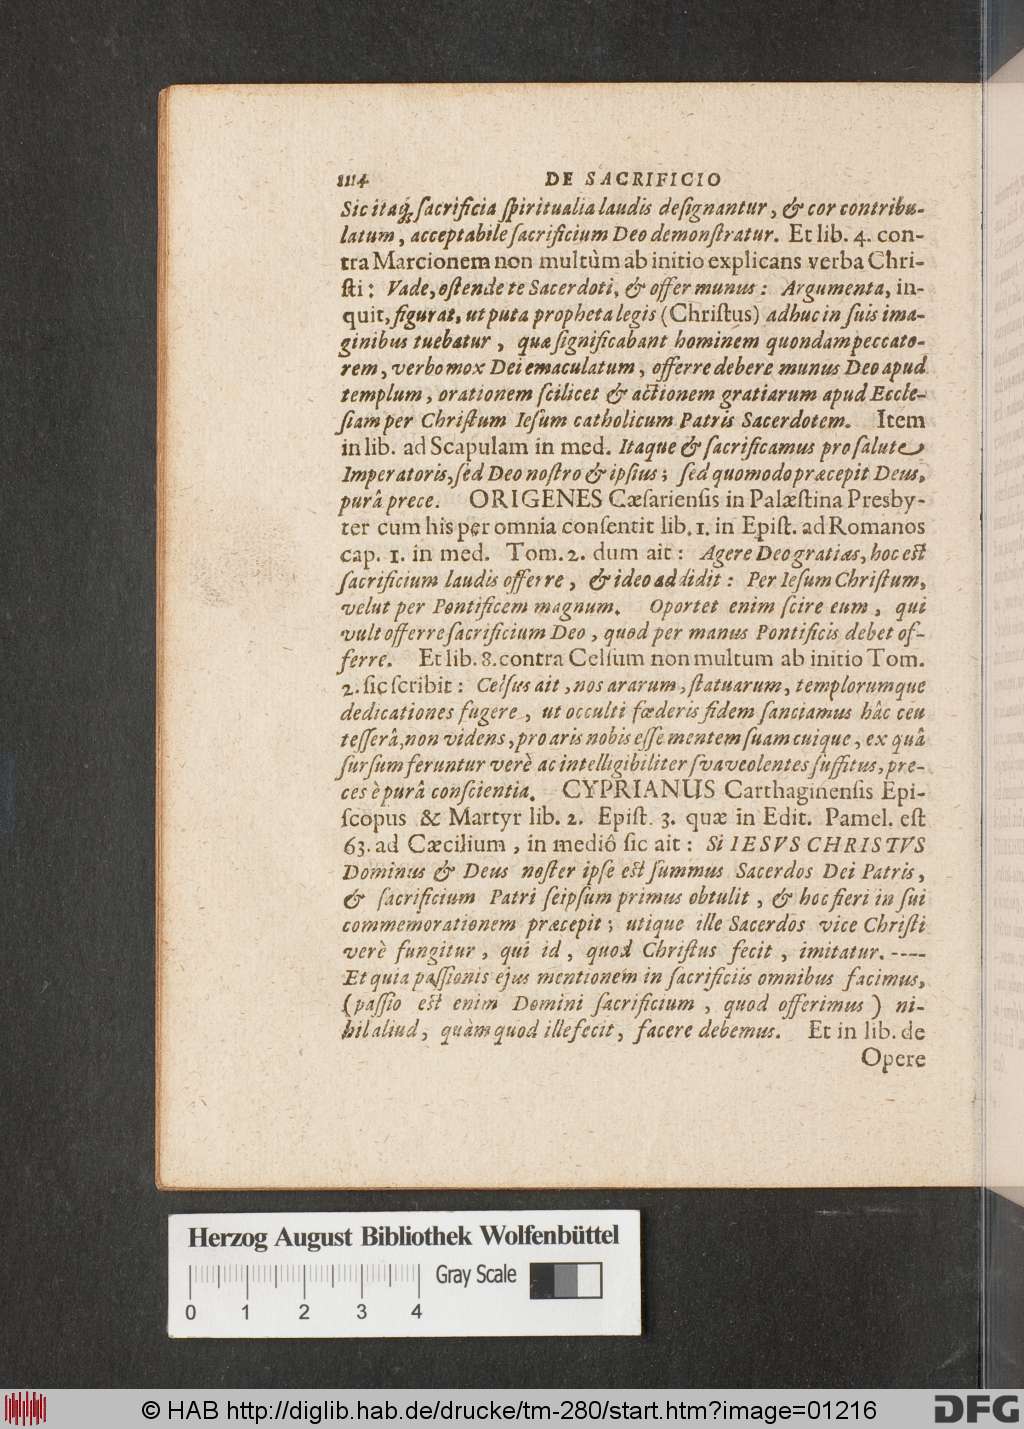 1114 DE SACRIFICIO
Sic itaq́; ſacrificia ſpiritualia laudis deſignantur, & cor contribu-
latum, acceptabile ſacrificium Deo demonſtratur. Et lib. 4. con-
tra Marcionem non multùm ab initio explicans verba Chri-
ſti: Vade, oſtende te Sacerdoti, & offer munus: Argumenta, in-
quit, figurat, ut puta propheta legis (Chriſtus) adhuc in ſuis ima-
ginibus tuebatur, quæ ſignificabant hominem quondam peccato-
rem, verbo mox Dei emaculatum, offerre debere munus Deo apud
templum, orationem ſcilicet & actionem gratiarum apud Eccle-
ſiam per Chriſtum Ieſum catholicum Patris Sacerdotem. Item
in lib. ad Scapulam in med. Itaque & ſacrificamus pro ſalute
Imperatoris, ſed Deo noſtro & ipſius; ſed quomodo præcepit Deus,
purâ prece. ORIGENES Cæſarienſis in Palæſtina Presby-
ter cum his per omnia conſentit lib. 1. in Epiſt. ad Romanos
cap. 1. in med. Tom. 2. dum ait: Agere Deo gratias, hoc eſt
ſacrificium laudis offerre, & ideo addidit: Per Ieſum Chriſtum,
velut per Pontificem magnum. Oportet enim ſcire eum, qui
vult offerre ſacrificium Deo, quod per manus Pontificis debet of-
ferre. Et lib. 8. contra Celſum non multum ab initio Tom.
2. ſic ſcribit: Celſus ait, nos ararum, ſtatuarum, templorumque
dedicationes fugere, ut occulti fœderis fidem ſanciamus hâc ceu
teſſerâ, non videns, pro aris nobis eſſe mentem ſuam cuique, ex quâ
ſurſum feruntur verè ac intelligibiliter ſvaveolentes ſuffitus, pre-
ces è purâ conſcientia. CYPRIANUS Carthaginenſis Epi-
ſcopus & Martyr lib. 2. Epiſt. 3. quæ in Edit. Pamel. eſt
63. ad Cæcilium, in mediô ſic ait: Si IESVS CHRISTVS
Dominus & Deus noſter ipſe eſt ſummus Sacerdos Dei Patris,
& ſacrificium Patri ſeipſum primus obtulit, & hoc fieri in ſui
commemorationem præcepit; utique ille Sacerdos vice Chriſti
verè fungitur, qui id, quod Chriſtus fecit, imitatur. ----
Et quia paſſionis ejus mentionem in ſacrificiis omnibus facimus,
(paſſio eſt enim Domini ſacrificium, quod offerimus) ni-
hil aliud, quàm quod ille fecit, facere debemus. Et in lib. de
Opere
Herzog August Bibliothek Wolfenbüttel
Gray Scale
0 1 2 3 4
© HAB http://diglib.hab.de/drucke/tm-280/start.htm?image=01216
DFG